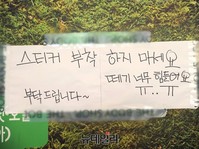 스티커 부착 하지 마세요
떼기 너무 힘들어요
부탁드립니다~
ㅠ..ㅠ
뉴데일리